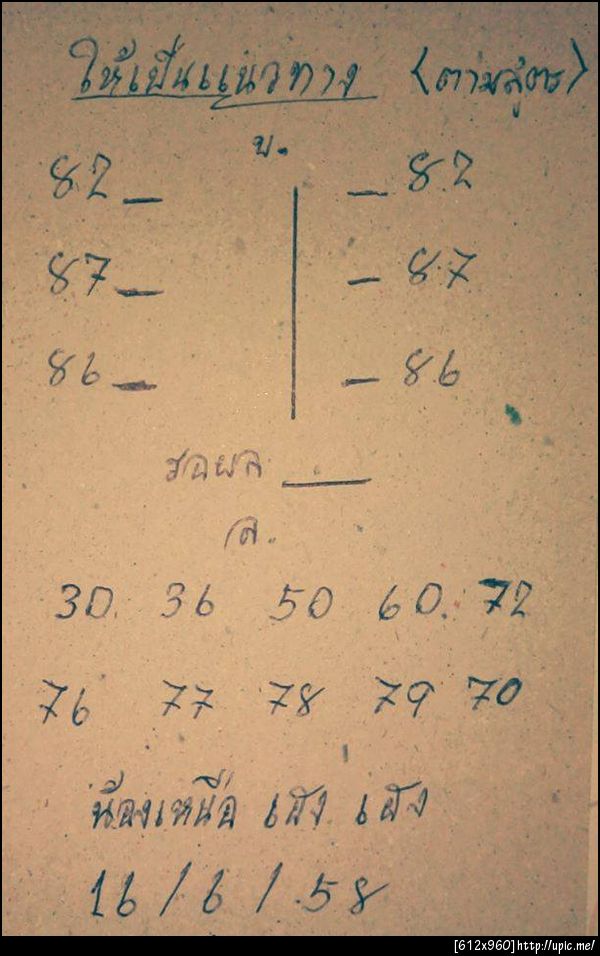 ให้เป็นแนวทาง (ตามสูตร)
บ.
82_ _82
87_ _87
86_ _86
รอผล ___
ล.
30. 36 50 60. 72
76 77 78 79 70
น้องเหนือ เฮง เฮง
16/6/58
[612x960]http://upic.me/